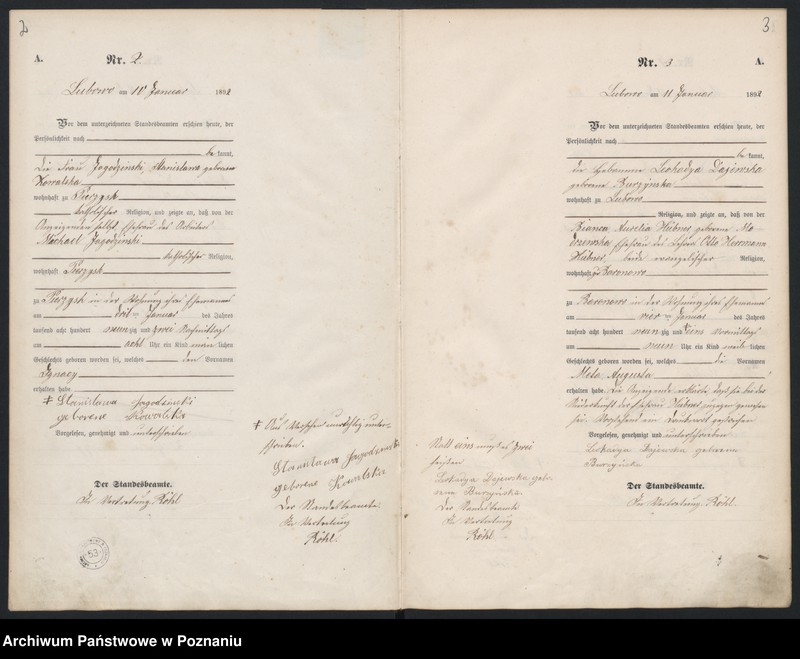 2
A.
Nr. 2.
Lubowo am 11 Januar 1892
Vor dem unterzeichneten Standesbeamten erschien heute, der
Persönlichkeit nach
be kannt,
die Frau Jagodzinski, Stanislawa geborene
Kowalska
wohnhaft zu Purzysk
katholischer Religion, und zeigte an, daß von der
Anzeigenden selbst, Ehefrau des Arbeiters
Michael Jagodzinski
katholischer Religion,
wohnhaft Purzysk
zu Purzysk in der Wohnung ihres Ehemannes
am drit ten Januar des Jahres
tausend acht hundert neun zig und zwei Nachmittags
um acht Uhr ein Kind männ lichen
Geschlechts geboren worden sei, welches den Vornamen
Ignacy
erhalten habe
Stanislawa Jagodzinski
geborene Kowalska
Vorgelesen, genehmigt und unterschrieben
Der Standesbeamte.
In Vertretung Röhl
Aus Versehen unrichtig unter-
schrieben.
Stanislawa Jagodzinski
geborene Kowalska
Der Standesbeamte
In Vertretung
Röhl.
53
3
Nr. 3
A.
Lubowo am 11 Januar 1892
Vor dem unterzeichneten Standesbeamten erschien heute, der
Persönlichkeit nach
be kannt,
die Hebamme Leokadya Dajewska
geborene Burzynska
wohnhaft zu Lubowo
Religion, und zeigte an, daß von der
Bianca Aurelia Hübner geborene
Ehefrau des Lehrers Otto Hermann
Hübner, beide evangelischer Religion,
wohnhaft zu Baranowo
zu Baranowo in der Wohnung ihres Ehemannes
am vier ten Januar des Jahres
tausend acht hundert neun zig und eins Vormittags
um neun Uhr ein Kind weib lichen
Geschlechts geboren worden sei, welches die Vornamen
Meta Augusta
erhalten habe. Die Anzeigende erklärte, daß sie bei der
Niederkunft der Ehefrau Hübner zugegen gewesen
sei.
Vorgelesen, genehmigt und unterschrieben
Leokadya Dajewska geborene
Burzynska
Der Standesbeamte.
In Vertretung Röhl.
Statt eins muß es zwei
heißen
Leokadya Dajewska gebo-
rene Burzynska
Der Standesbeamte
In Vertretung
Röhl
Archiwum Państwowe w Poznaniu